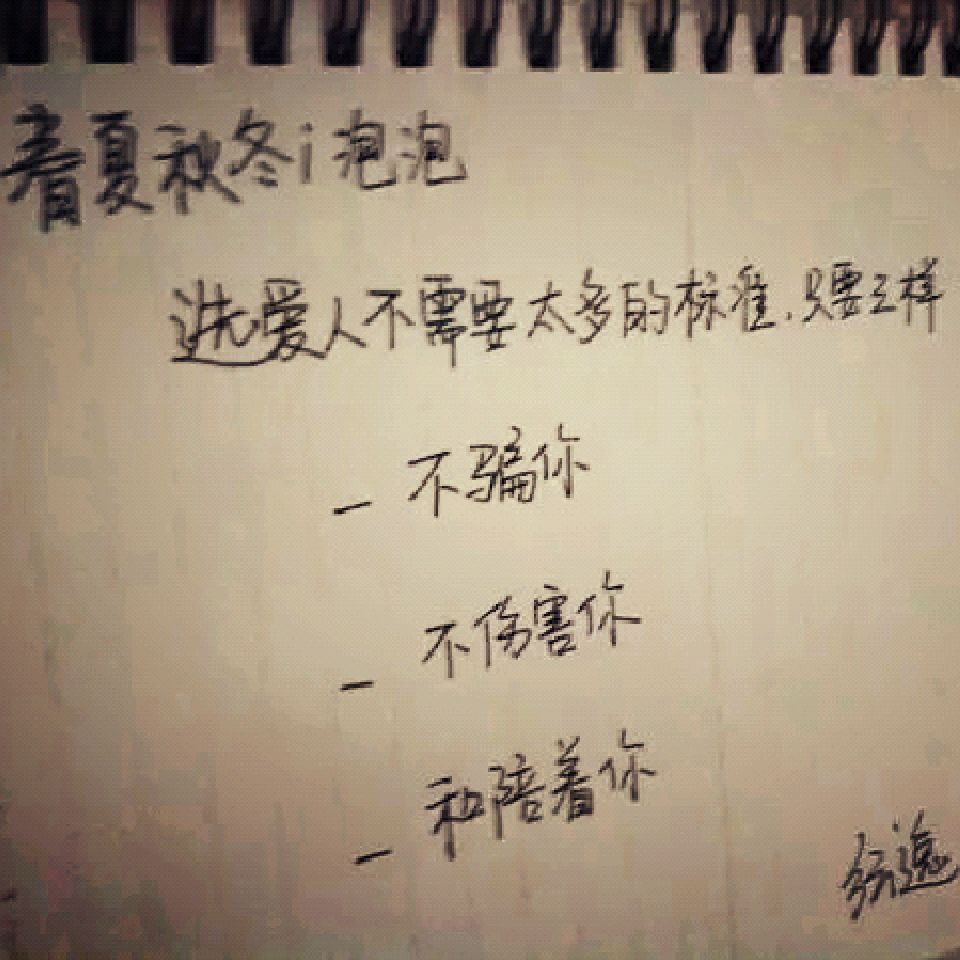 春夏秋冬i泡泡
选爱人不需要太多的标准.只要三样
- 不骗你
- 不伤害你
- 和陪着你